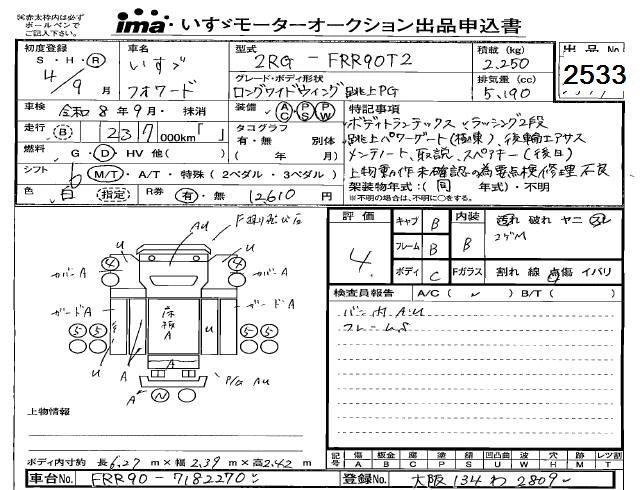 ※赤太枠内は必ずボールペンでご記入下さい。
ima・いすゞモーターオークション出品申込書
初度登録 S・H・R 4/9月
車名 いすゞ フオワード
型式 2RG-FRR90T2
グレード・ボディ形状 ロングワイドウイング 跳上PG
積載(kg) 2.250
排気量(cc) 5.190
出品No.
2533
車検 令和 8年 9月・抹消
装備 AC PS PW
走行 B 237 000km「 」
タコグラフ 有・無 別体 ( 年 月)
燃料 G・D・HV 他( )
シフト 6 M/T・A/T・特殊(2ペダル・3ペダル)
色 白 (指定) R券 有・無 12610 円
特記事項
ボディトランテックス ラッシング2段
跳上パワーゲート(極東)、後輪エアサス
メンテノート、取説、スペアキー(後日)
上物要の作未確認の為要点検修理不良
架装物年式:(同 年式)・不明
※不明の場合は、不明に○をする。
評価 4
キャブ B
フレーム B
ボディ C
内装 B
汚れ 破れ ヤニ スレ
コゲM
Fガラス 割れ 線 点傷 イバリ
検査員報告 A/C( ✓ ) B/T( )
バン内AU
フレームS
F廻り飛び石
AU
U
U
4
4
カバーA
カバーA
ガードA
ガードA
床板A
U
5 5
5 5
U
A
A
A
N
P/G AU
上物情報
ボディ内寸約 長6.27m×幅2.39m×高2.42m
記号 傷A 板金B 腐C 塗P 錆S 凹凸曲U 波W 穴H 跡M レツ割T
車台No. FRR90-7182270
登録No. 大阪134わ2809